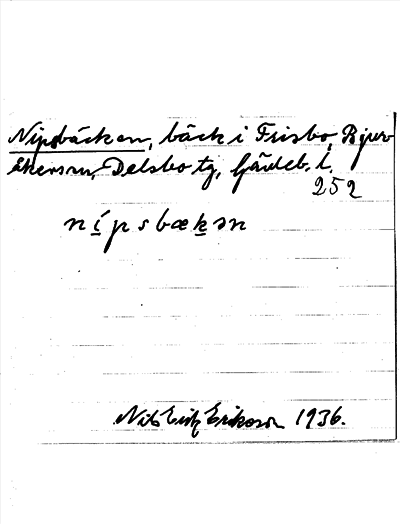 Nipsbäcken, bäck i Frisbo, Bjur-
åkers sn, Delsbo tg, Gävleb. l.
252
nípsbækən
Nils Erik Erikson 1936.